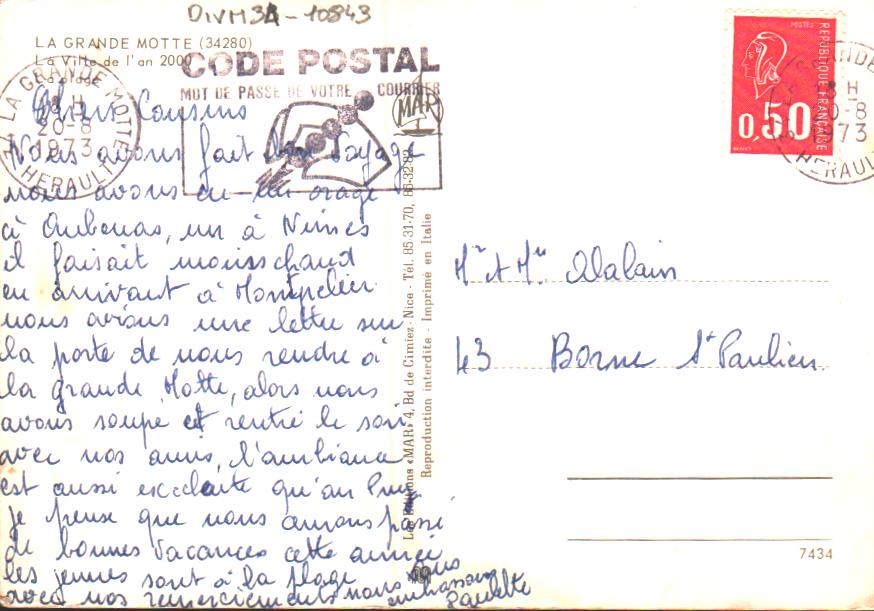 DIVM34-10843
LA GRANDE MOTTE (34280)
La Ville de l'an 2000
La plage
CODE POSTAL
MOT DE PASSE DE VOTRE COURRIER
34 LA GRANDE MOTTE
18 H
20-8
1973
HERAULT
MAR
Chers Cousins
Nous avons fait bon voyage
nous avons eu un orage
à Aubenas, un à Nimes
il faisait moins chaud
en arrivant à Montpelier
nous avions une lettre sur
la porte de nous rendre à
la grande Motte, alors nous
avons soupé et rentré le soir
avec nos amis, l'ambiance
est aussi qu'au
je pense que nous aurons passé
de bonnes vacances cette année
les jeunes sont à la plage
avec nos remerciements nous vous
embrassons
Paulette
Les Editions «MAR» 4, Bd de Cimiez - Nice - Tél. 85-31-70, 85-32-82
Reproduction interdite - Imprimé en Italie
POSTES
REPUBLIQUE FRANÇAISE
0,50
GRANDE
18 H
20-8
1973
HERAULT
Mr et Me Alabain
43 Borne St Paulien
7434